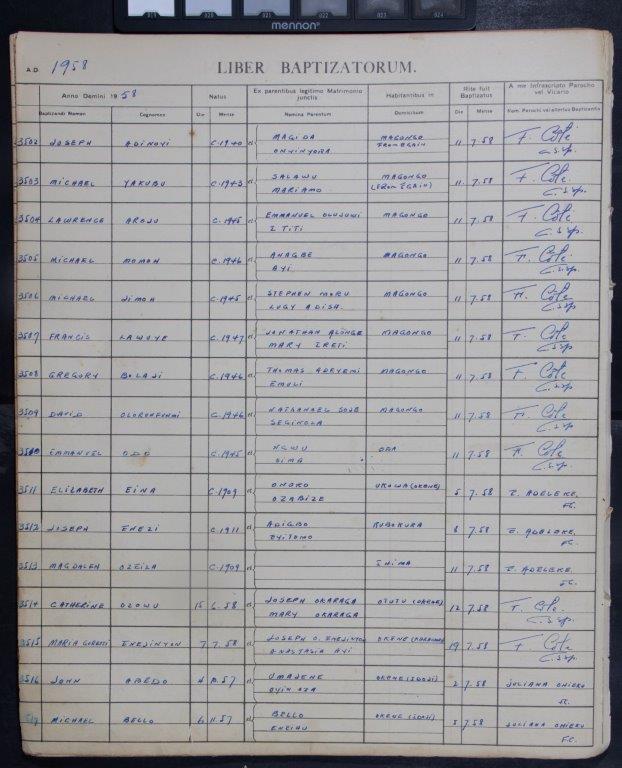 mennon
A.D. 1958
LIBER BAPTIZATORUM.
Anno Domini 1958
Natus
Ex parentibus legitimo Matrimonio junctis
Habitantibus in
Rite fuit Baptizatus
A me Infrascripto Parocho vel Vicario
Baptizandi Nomen Cognomen Die Mense Nomina Parentum Domicilium Die Mense Nom. Parochi vel alterius Baptizantis
3502 JOSEPH ADINOYI C.1940 et MAGIDA ONYINYORA MAGONGO FROM EGAIN 11 7.58 F. Coté C.S.Sp.
3503 MICHAEL YAKUBU C.1943 et SALAWU MARIAMO MAGONGO (FROM EGAIN) 11 7.58 F. Coté C.S.Sp.
3504 LAWRENCE AROJU C.1945 et EMMANUEL OLUJUWI TITI MAGONGO 11 7.58 F. Coté C.S.Sp.
3505 MICHAEL MOMOH C.1946 et ANAGBE AYI MAGONGO 11 7.58 F. Coté C.S.Sp.
3506 MICHAEL JIMOH C.1945 et STEPHEN MORU LUCY ADISA MAGONGO 11 7.58 F. Coté C.S.Sp.
3507 FRANCIS LAWOYE C.1947 et JONATHAN ALONGE MARY IRETI MAGONGO 11 7.58 F. Coté C.S.Sp.
3508 GREGORY BOLAJI C.1946 et THOMAS ADEYEMI EMULI MAGONGO 11 7.58 F. Coté C.S.Sp.
3509 DAVID OLORUNFUNMI C.1946 et NATHANAEL SOJE SEGINOLA MAGONGO 11 7.58 F. Coté C.S.Sp.
3510 EMMANUEL ODO C.1945 et NGWU OIMA 11 7.58 F. Coté C.S.Sp.
3511 ELIZABETH EINA C.1909 et OHORO OZABIZE UKOWA (OKENE) 5 7.58 E. ADELEKE, FC.
3512 JOSEPH ENEZI C.1911 et ADIGBO OYITOMO KUROKURA 8 7.58 E. ADELEKE, FC.
3513 MAGDALEN OZEILA C.1909 et IHIMA 11 7.58 E. ADELEKE, FC.
3514 CATHERINE OZOWU 15 6.58 et JOSEPH OKARAGA MARY OKARAGA OTUTU (OKENE) 12 7.58 F. Coté C.S.Sp.
3515 MARIA GORETTI ENEJINYON 7 7.58 et JOSEPH O. ENEJINYON ANASTASIA AYI OKENE 19 7.58 F. Coté C.S.Sp.
3516 JOHN ABEDO et UMAJENE OYIN OZA OKENE (IDOJI) 2 7.58 JULIANA OHIEKU FC.
3517 MICHAEL BELLO 6 11.57 et BELLO ENEIHU OKENE (IDOJI) 5 7.58 JULIANA OHIEKU F.C.